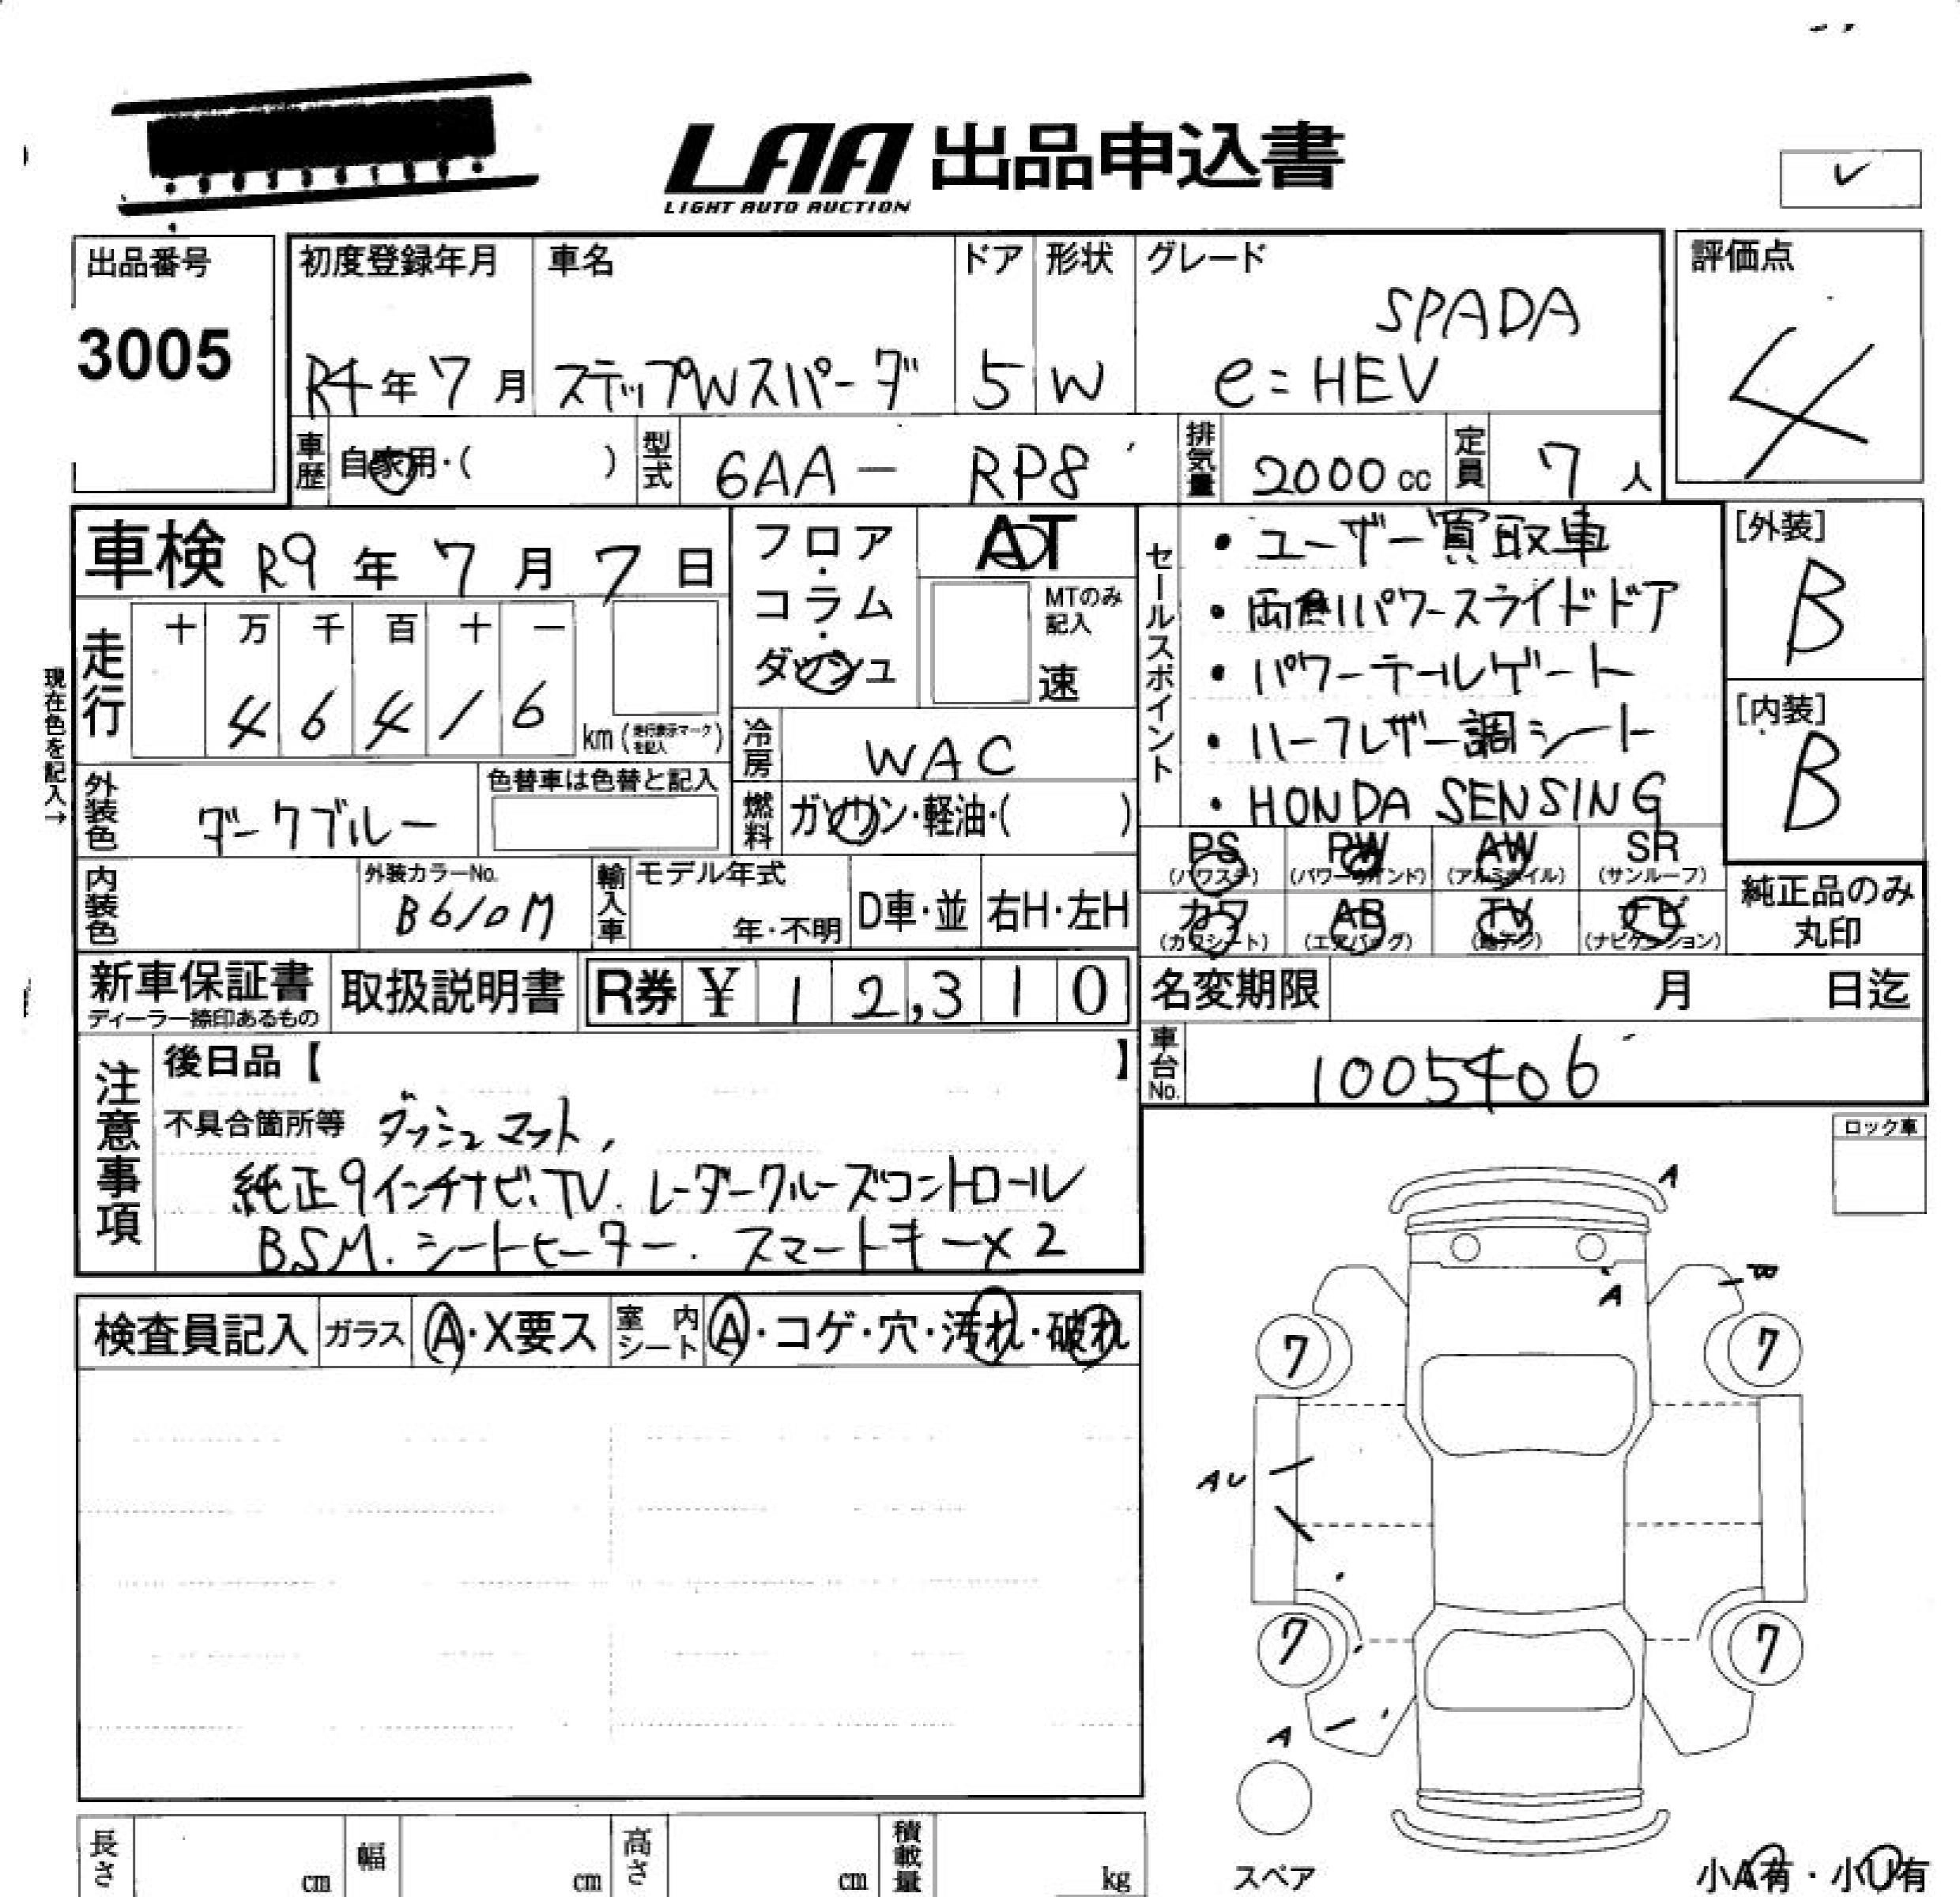 LAA 出品申込書
LIGHT AUTO AUCTION
出品番号
3005
初度登録年月
R4年7月
車名
ステップWスパーダ
ドア
5
形状
W
グレード
SPADA
e:HEV
評価点
4
車歴 自家用・( )
型式 6AA- RP8
排気量 2000cc
定員 7人
車検 R9年7月7日
フロア・コラム・ダッシュ
AT
MTのみ記入
速
走行
十 万 千 百 十 一
4 6 4 1 6
km(走行表示マークを記入)
現在色を記入→
冷房 WAC
外装色 ダークブルー
色替車は色替と記入
燃料 ガソリン・軽油・( )
内装色
外装カラーNo.
B610M
輸入車
モデル年式
年・不明
D車・並
右H・左H
セールスポイント
・ユーザー買取車
・両側パワースライドドア
・パワーテールゲート
・ハーフレザー調シート
・HONDA SENSING
[外装]
B
[内装]
B
PS (パワステ)
PW (パワーウインド)
AW (アルミホイル)
SR (サンルーフ)
カワ (カワシート)
AB (エアバッグ)
TV (地デジ)
ナビ (ナビゲーション)
純正品のみ
丸印
新車保証書
ディーラー捺印あるもの
取扱説明書
R券 ¥12,310
名変期限 月 日迄
車台No. 1005406
注意事項
後日品【 】
不具合箇所等 ダッシュマット,
純正9インチナビ.TV.レーダークルーズコントロール
BSM.シートヒーター.スマートキー×2
ロック車
検査員記入
ガラス A・X要ス
室内シート A・コゲ・穴・汚れ・破れ
A
A
7
7
AU
7
7
A
スペア
小A有・小U有
長さ cm
幅 cm
高さ cm
積載量 kg